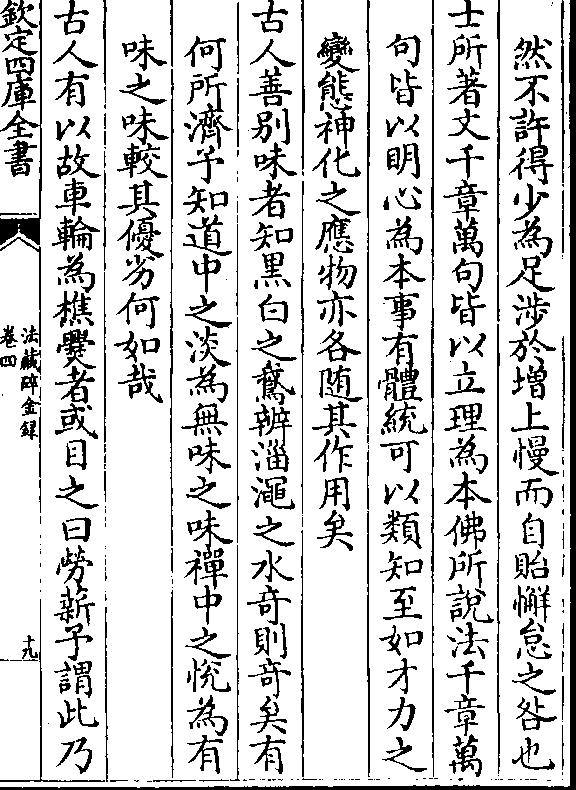 然不許得少為足涉於增上慢而自貽懈怠之咎也
士所著文千章萬句皆以立理為本佛所說法千章萬
句皆以明心為本事有體統可以類知至如才力之
變態神化之應物亦各随其作用矣
古人善别味者知黒白之鵞辨淄澠之水奇則奇矣有
何所濟予知道中之淡為無味之味禪中之悅為有
味之味較其優劣何如哉
古人有以故車輪為樵爨者或目之曰勞薪予謂此乃
欽定四庫全書
法藏碎金録
卷四
十九